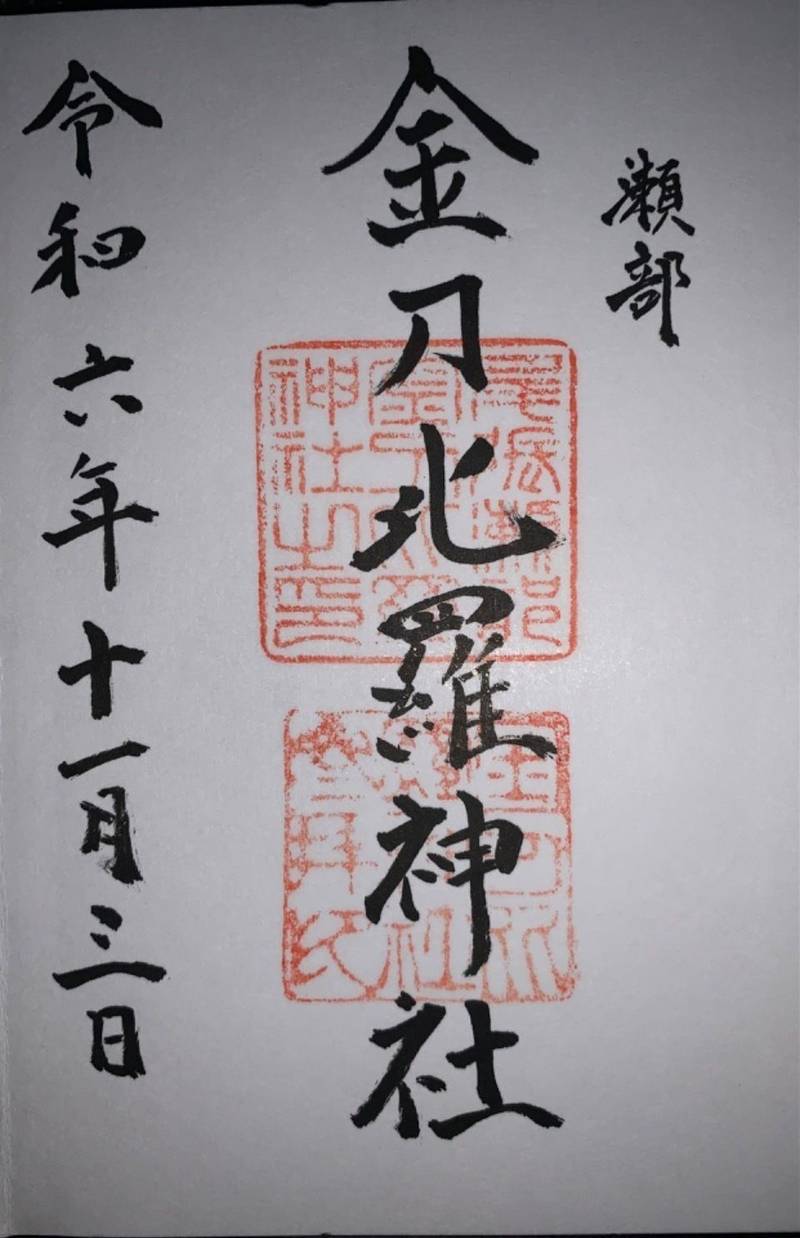 瀬部
金刀比羅神社
令和六年十一月三日
尾張瀬部
金刀比羅
神社之印